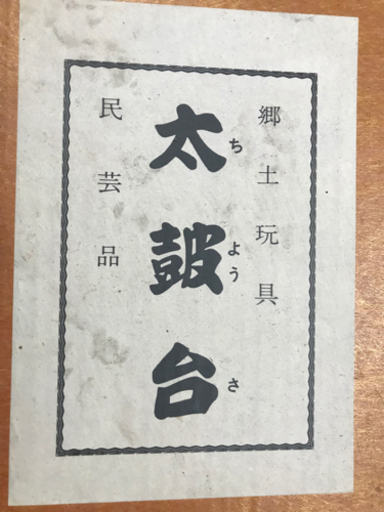 郷土玩具
太鼓台
ちようさ
民芸品